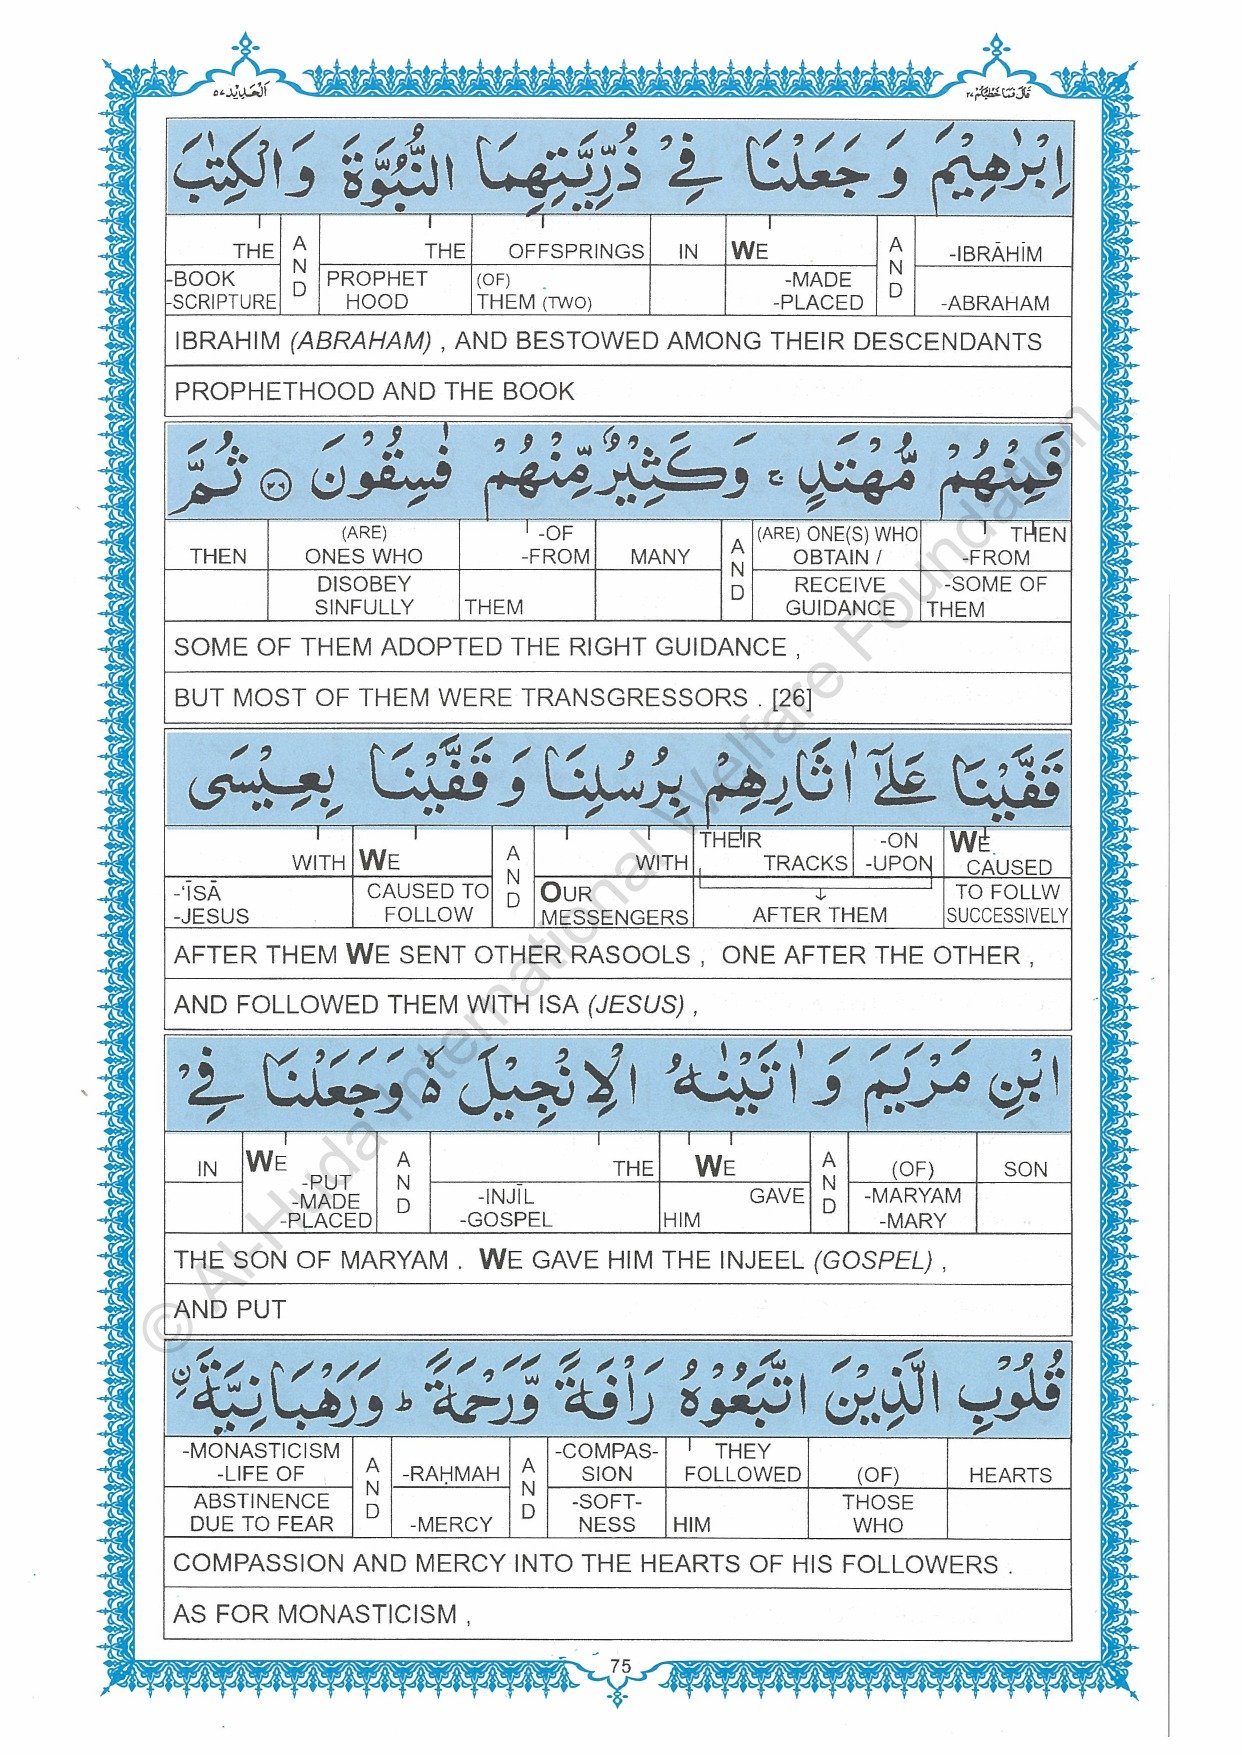 اَلْحَدِيْد ٥٧
قَالَ فَمَا خَطْبُكُمْ ٢٧
اِبْرٰهِيْمَ وَ جَعَلْنَا فِيْ ذُرِّيَّتِهِمَا النُّبُوَّةَ وَ الْكِتٰبَ
THE AND THE OFFSPRINGS IN WE AND -IBRĀHĪM
-BOOK PROPHET (OF) -MADE
-SCRIPTURE HOOD THEM (TWO) -PLACED -ABRAHAM
IBRAHIM (ABRAHAM) , AND BESTOWED AMONG THEIR DESCENDANTS
PROPHETHOOD AND THE BOOK
فَمِنْهُمْ مُّهْتَدٍ ۚ وَ كَثِيْرٌ مِّنْهُمْ فٰسِقُوْنَ ٢٦ ثُمَّ
(ARE) -OF (ARE) ONE(S) WHO THEN
THEN ONES WHO -FROM MANY AND OBTAIN / -FROM
DISOBEY RECEIVE -SOME OF
SINFULLY THEM GUIDANCE THEM
SOME OF THEM ADOPTED THE RIGHT GUIDANCE ,
BUT MOST OF THEM WERE TRANSGRESSORS . [26]
قَفَّيْنَا عَلٰٓى اٰثَارِهِمْ بِرُسُلِنَا وَ قَفَّيْنَا بِعِيْسَى
THEIR -ON WE
WITH WE AND WITH TRACKS -UPON CAUSED
-‘ĪSĀ CAUSED TO OUR TO FOLLW
-JESUS FOLLOW MESSENGERS AFTER THEM SUCCESSIVELY
AFTER THEM WE SENT OTHER RASOOLS , ONE AFTER THE OTHER ,
AND FOLLOWED THEM WITH ISA (JESUS) ,
ابْنِ مَرْيَمَ وَ اٰتَيْنٰهُ الْاِنْجِيْلَ ەۙ وَ جَعَلْنَا فِيْ
IN WE AND THE WE AND (OF) SON
-PUT
-MADE -INJĪL GAVE -MARYAM
-PLACED -GOSPEL HIM -MARY
THE SON OF MARYAM . WE GAVE HIM THE INJEEL (GOSPEL) ,
AND PUT
قُلُوْبِ الَّذِيْنَ اتَّبَعُوْهُ رَاْفَةً وَّ رَحْمَةً ؕ وَ رَهْبَانِيَّةَ ۨ
-MONASTICISM AND AND -COMPAS- THEY
-LIFE OF -RAḤMAH SION FOLLOWED (OF) HEARTS
ABSTINENCE -SOFT- THOSE
DUE TO FEAR -MERCY NESS HIM WHO
COMPASSION AND MERCY INTO THE HEARTS OF HIS FOLLOWERS .
AS FOR MONASTICISM ,
75
© Al-Huda International Welfare Foundation